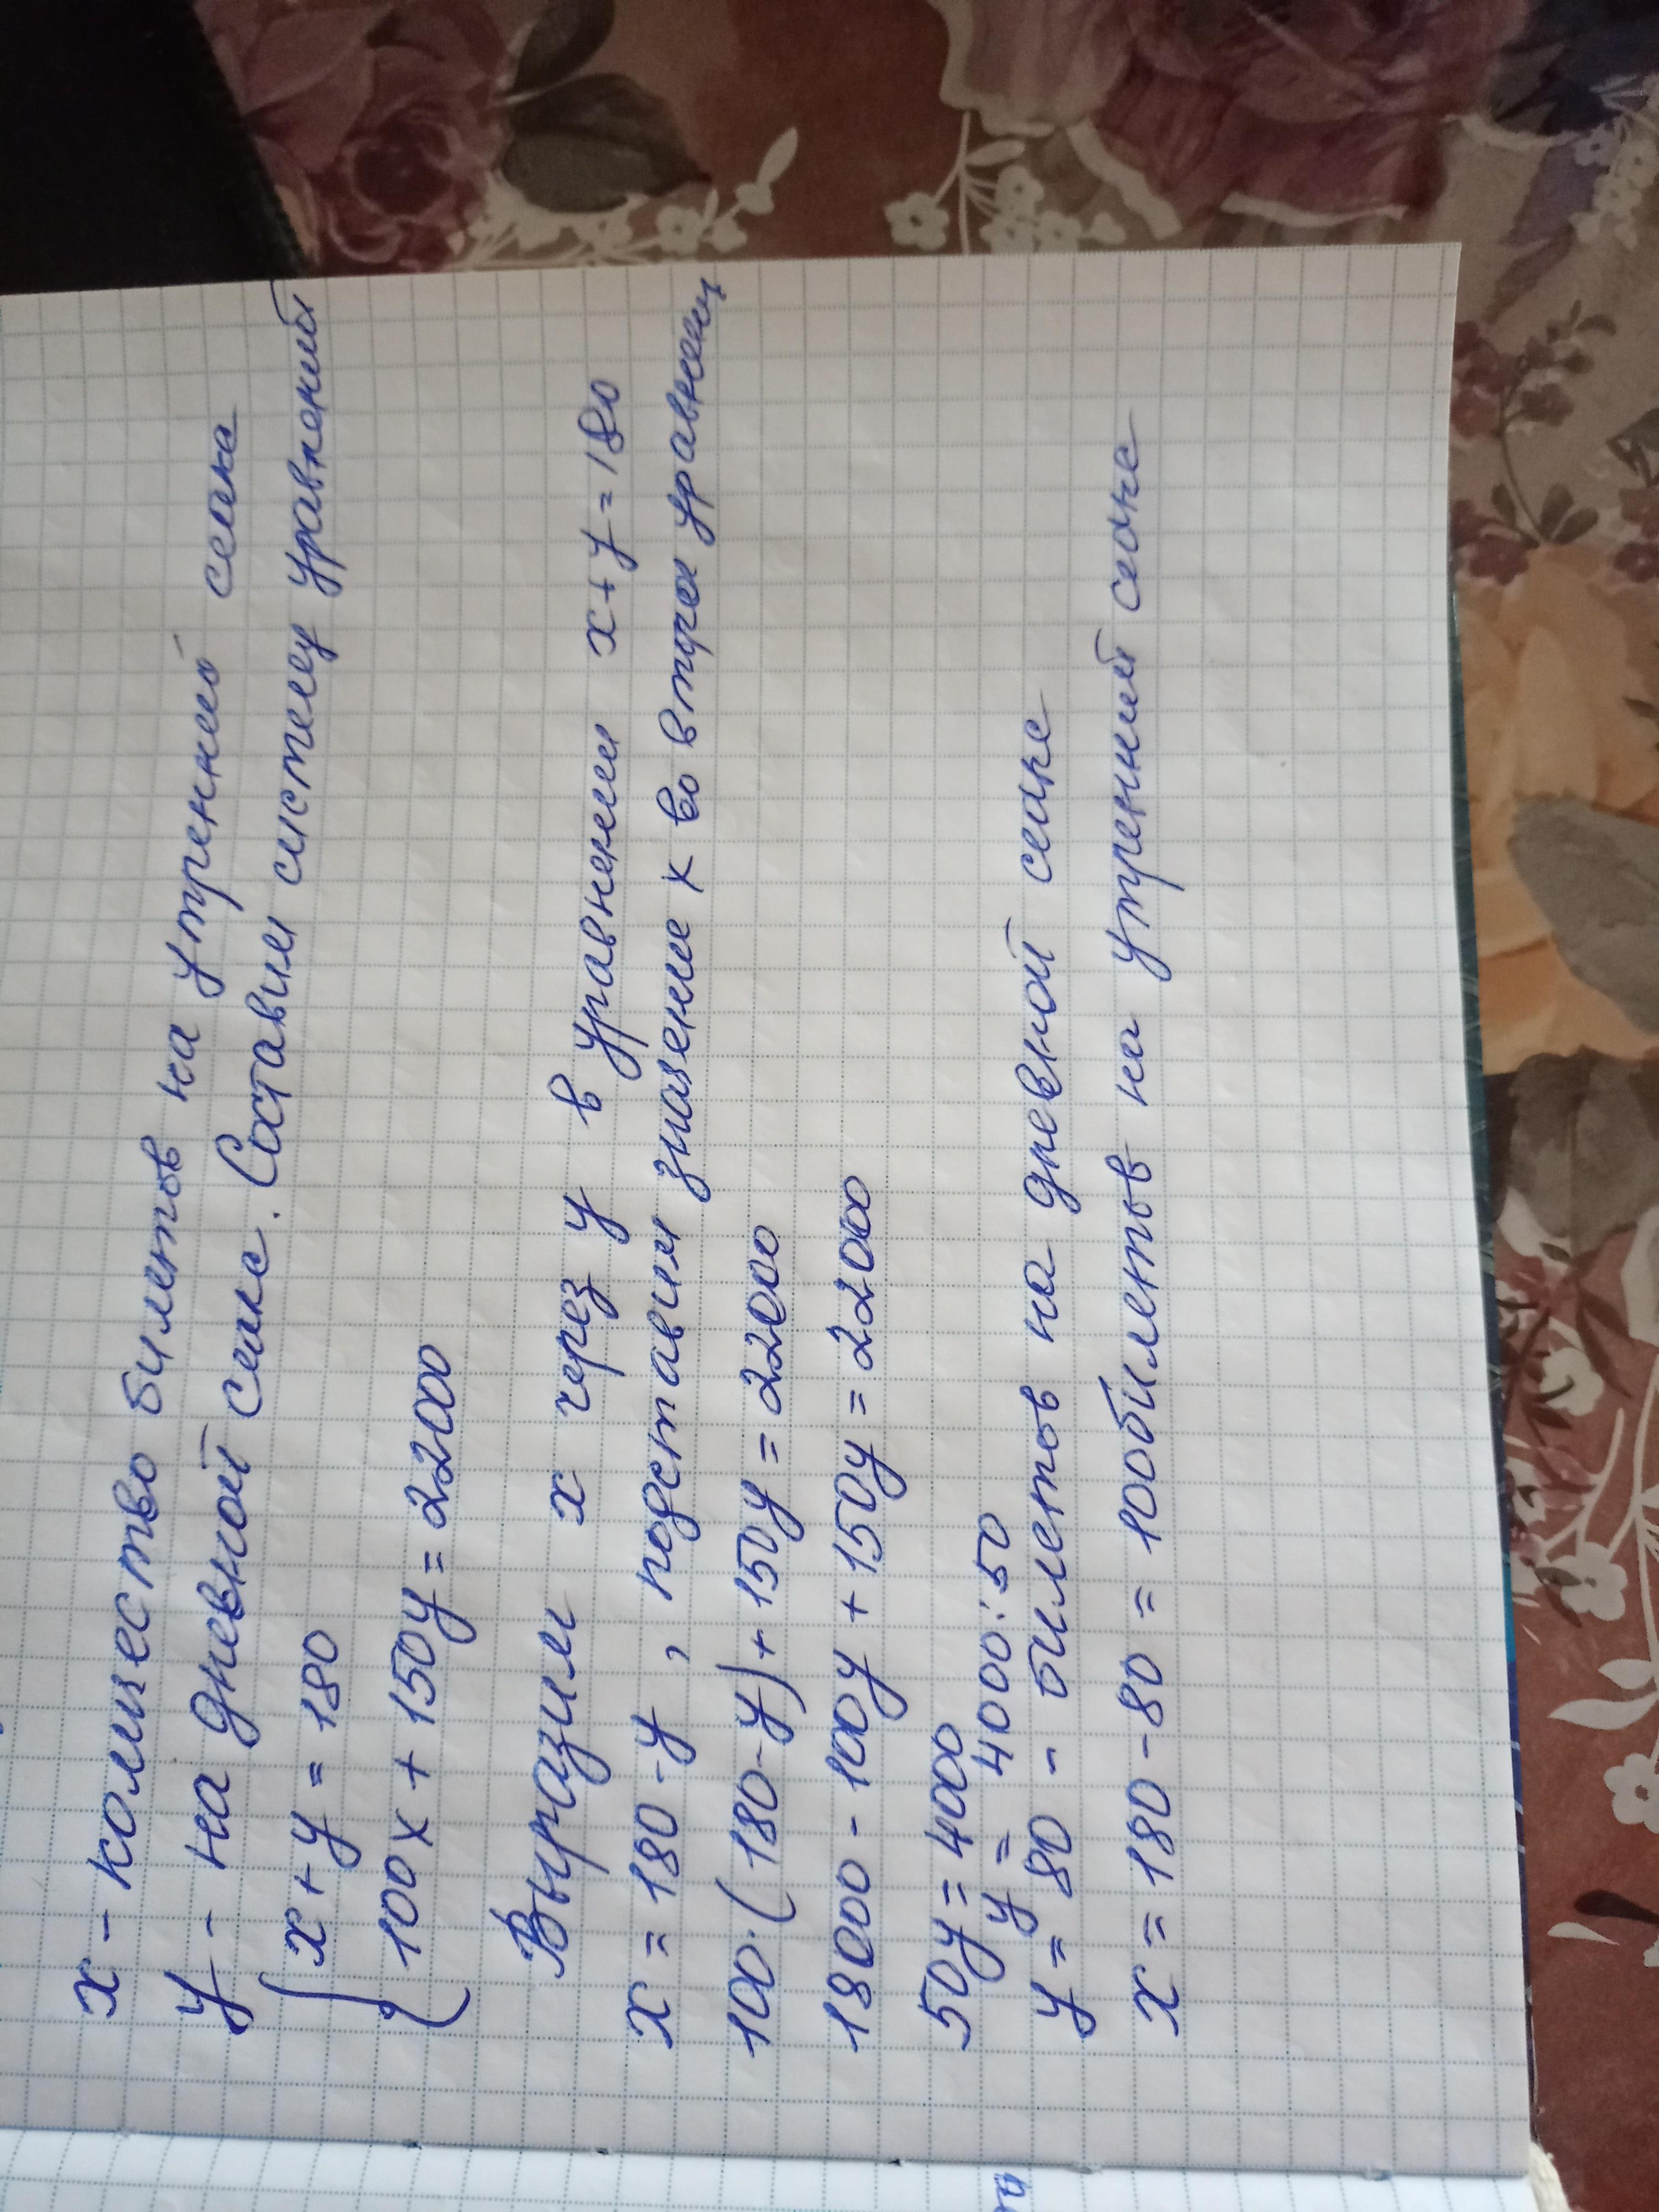 x - количество билетов на утренний сеанс
y - на дневной сеанс. Составим систему уравнений
{ x + y = 180
100x + 150y = 22000
Выразим x через y в уравнении x + y = 180
x = 180 - y, подставим значение x во втрое уравнен
100 · (180 - y) + 150y = 22000
18000 - 100y + 150y = 22000
50y = 4000
y = 4000 : 50
y = 80 - билетов на дневной сеанс
x = 180 - 80 = 100 билетов на утренний сеанс